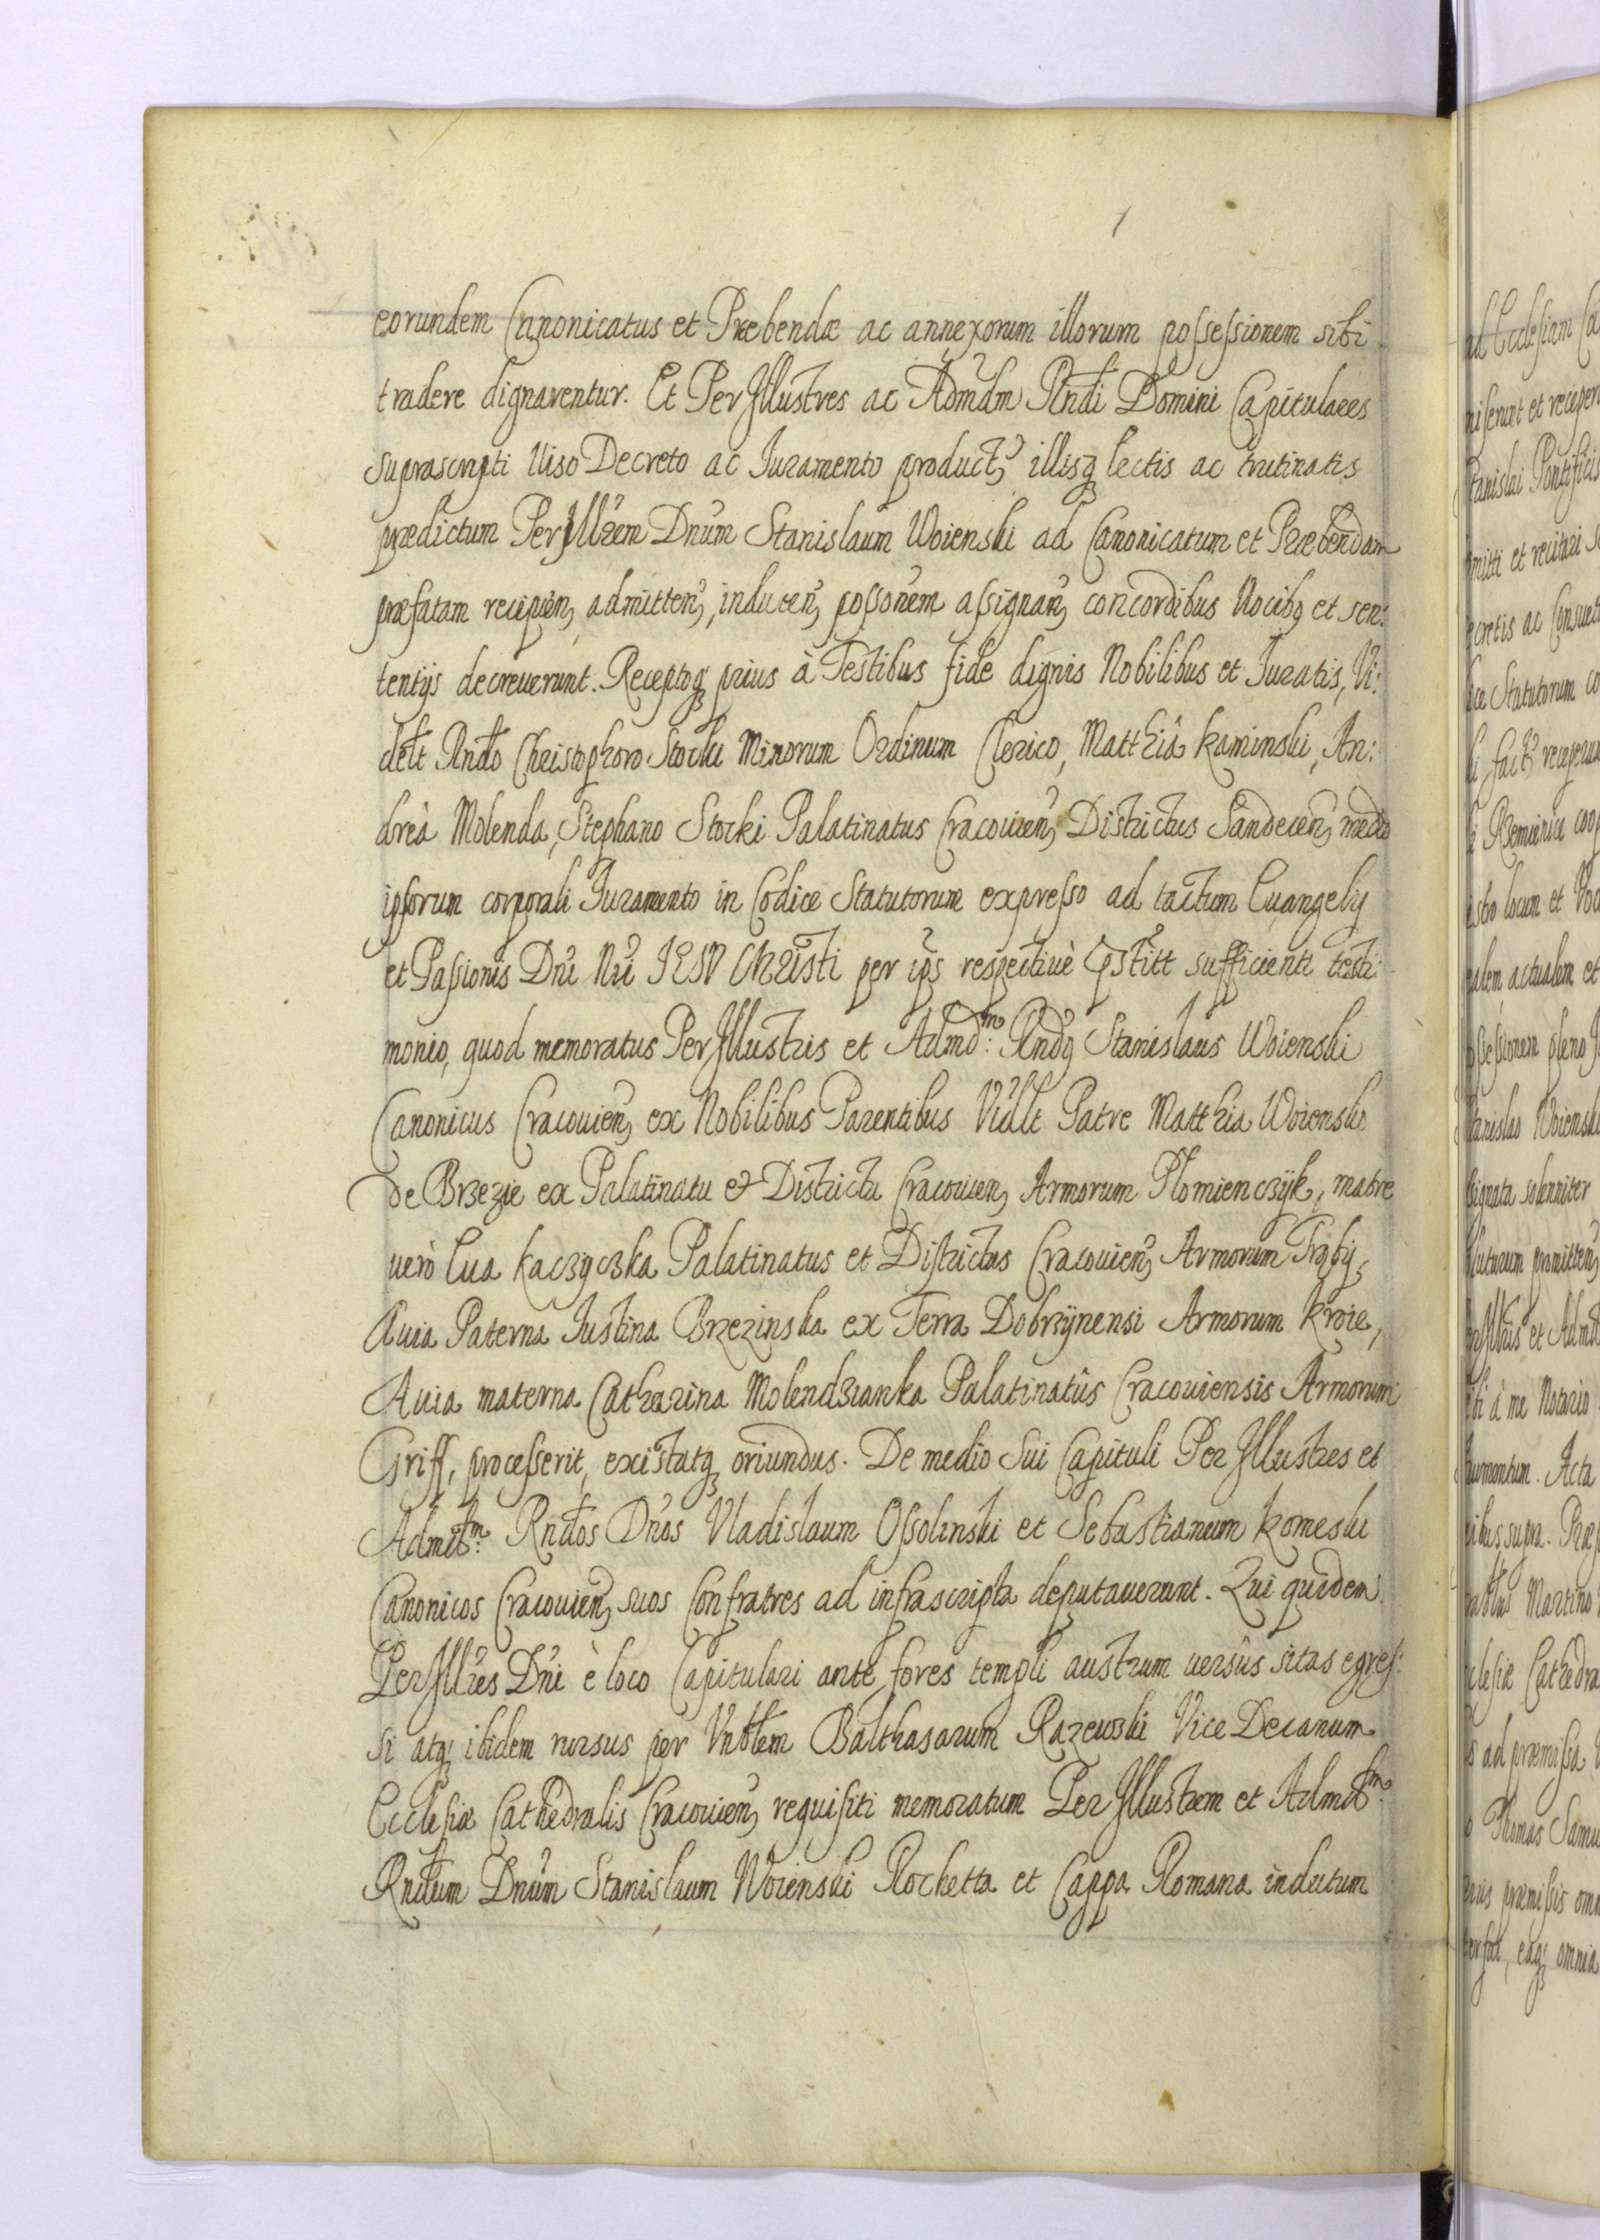 eorundem Canonicatus et Præbendæ ac annexorum illorum possessionem sibi
tradere dignaventur. Et PerIllustres ac Admdm Rndi Domini Capitulares
suprascripti Viso Decreto ac Iuramento product, illisq lectis ac trutinatis
prædictum PerIllrem Dnum Stanislaum Woienski ad Canonicatum et Præbendam
præfatam recipien, admitten, inducen, possonem assignan, concordibus Vocibq et sen:
tentijs decreverunt. Receptoq prius à Testibus fide dignis Nobilibus et Iuratis, Vi:
delt Rndo Christophoro Stocki Minorum Ordinum Clerico, Matthiâ Kaminski, An:
dreâ Molenda, Stephano Stocki Palatinatus Cracouien, Districtus Sandecen, medio
ipsorum corporali Iuramento in Codice Statutorum expresso ad tactum Euangelij
et Passionis Dni Nri IESV Christi per ips respectiuè pstitt sufficienti testi:
monio, quod memoratus PerIllustris et Admd:m Rndq Stanislaus Woienski
Canonicus Cracouien, ex Nobilibus Parentibus Vidlt Patre Matthia Woienski
de Brzezie ex Palatinatu et Districtu Cracouien, Armorum Plomienczyk, matre
verò Eua Kaczyczka Palatinatus et Districtus Cracouien, Armorum Trąby,
Auia Paterna Iustina Brzezinska ex Terra Dobrzynensi Armorum Kroie,
Auia materna Catharina Molendzianka Palatinatûs Cracouiensis Armorum
Griff, processerit, existatq oriundus. De medio Sui Capituli Per Illustres et
Admd:m Rndos Dnos Vladislaum Ossolinski et Sebastianum Komeski
Canonicos Cracouien, suos Confratres ad infrascripta deputauerunt. Qui quidem
PerIllres Dni è loco Capitulari ante fores templi austrum versûs sitas egres:
si atq ibidem rursus per Vnblem Balthasarum Razewski Vice Decanum
Ecclesiæ Cathedralis Cracouien, requisiti memoratum Per Illustrem et Admd:m
Rndum Dnum Stanislaum Woienski Rochetta et Cappa Romana indutum